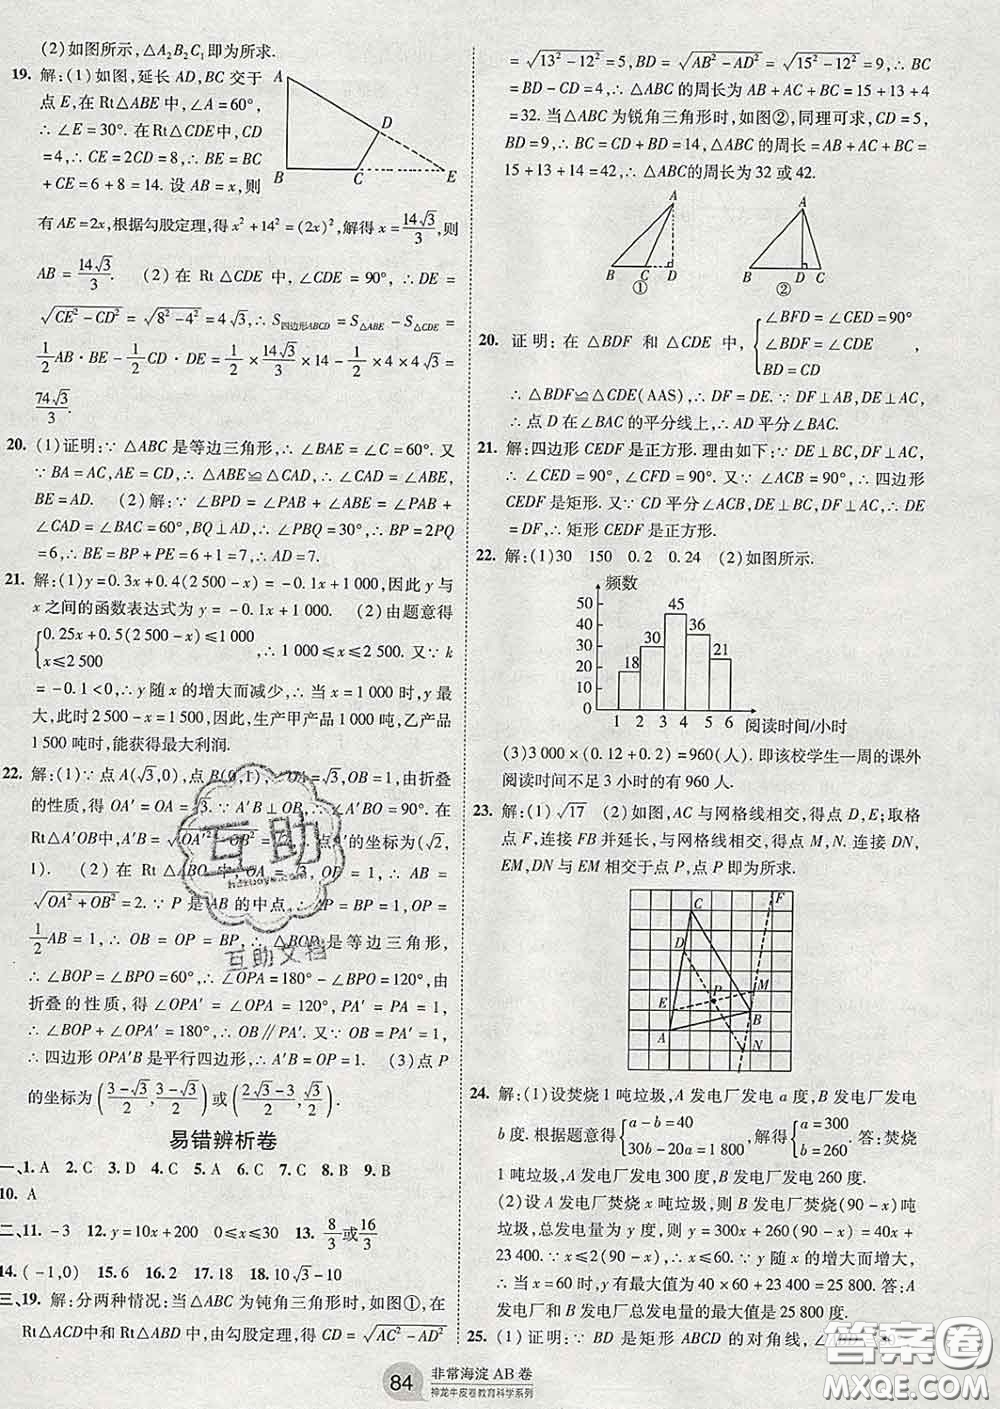 (2)如图所示,△A₂B₂C₁即为所求.
19. 解:(1)如图,延长AD,BC交于
点E,在Rt△ABE中,∠A=60°,
∴∠E=30°. 在Rt△CDE中,CD
=4,∴CE=2CD=8,∴BE=BC
+CE=6+8=14. 设AB=x,则
A
D
B
C
E
有AE=2x,根据勾股定理,得x²+14²=(2x)²,解得x=14√3/3,则
AB=14√3/3. (2)在Rt△CDE中,∠CDE=90°,∴DE=
√(CE²−CD²)=√(8²−4²)=4√3,∴S四边形ABCD=S△ABE−S△CDE=
1/2 AB·BE−1/2 CD·DE=1/2×14√3/3×14−1/2×4×4√3=
74√3/3.
20. (1)证明:∵△ABC是等边三角形,∴∠BAE=∠C=60°. 又
∵BA=AC,AE=CD,∴△ABE≌△CAD(SAS),∴∠ABE=∠CAD,
BE=AD. (2)解:∵∠BPD=∠PAB+∠ABE=∠PAB+
∠CAD=∠BAC=60°,BQ⊥AD,∴∠PBQ=30°,∴BP=2PQ
=6,∴BE=BP+PE=6+1=7,∴AD=7.
21. 解:(1)y=0.3x+0.4(2 500−x)=−0.1x+1 000,因此y与
x之间的函数表达式为y=−0.1x+1 000. (2)由题意得
{0.25x+0.5(2 500−x)≤1 000
x≤2 500
,∴1 000≤x≤2 500. 又∵k
=−0.1<0,∴y随x的增大而减少,∴当x=1 000时,y最
大,此时2 500−x=1 500,因此,生产甲产品1 000吨,乙产品
1 500吨时,能获得最大利润.
22. 解:(1)∵点A(√3,0),点B(0,1),∴OA=√3,OB=1,由折叠
的性质,得OA′=OA=√3. ∵A′B⊥OB,∴∠A′BO=90°. 在
Rt△A′OB中,A′B=√(OA′²−OB²)=√2,∴点A′的坐标为(√2,
1). (2)在Rt△ABO中,OA=√3,OB=1,∴AB=
√(OA²+OB²)=2. ∵P是AB的中点,∴AP=BP=1,OP=
1/2 AB=1,∴OB=OP=BP,∴△BOP是等边三角形,
∴∠BOP=∠BPO=60°,∴∠OPA=180°−∠BPO=120°,由
折叠的性质,得∠OPA′=∠OPA=120°,PA′=PA=1,
∴∠BOP+∠OPA′=180°,∴OB∥PA′. 又∵OB=PA′=1,
∴四边形OPA′B是平行四边形,∴A′B=OP=1. (3)点P
的坐标为((3−√3)/2,(3−√3)/2)或((2√3−3)/2,√3/2).
易错辨析卷
一、1. A 2. C 3. D 4. C 5. A 6. C 7. D 8. B 9. B
10. A
二、11. −3 12. y=10x+200 0≤x≤30 13. 8/3或16/3
14. (−1,0) 15. 6 16. 2 17. 20 18. 10√3−10
三、19. 解:分两种情况:当△ABC为钝角三角形时,如图①,在
Rt△ACD中和Rt△ABD中,由勾股定理得CD=√(AC²−AD²)
=√(13²−12²)=5,BD=√(AB²−AD²)=√(15²−12²)=9,∴BC
=BD−CD=4,∴△ABC的周长为AB+AC+BC=15+13+4
=32. 当△ABC为锐角三角形时,如图②,同理可求,CD=5,
BD=9,∴BC=CD+BD=14,∴△ABC的周长为AB+AC+BC=
15+13+14=42,∴△ABC的周长为32或42.
A
B
C
D
①
A
B
D
C
②
20. 证明:在△BDF和△CDE中,{∠BFD=∠CED=90°
∠BDF=∠CDE
BD=CD
,
∴△BDF≌△CDE(AAS),∴DF=DE. ∵DF⊥AB,DE⊥AC,
∴点D在∠BAC的平分线上,∴AD平分∠BAC.
21. 解:四边形CEDF是正方形. 理由如下:∵DE⊥BC,DF⊥AC,
∴∠CED=90°,∠CFD=90°. 又∵∠ACB=90°,∴四边形
CEDF是矩形. 又∵CD平分∠ACB,DE⊥BC,DF⊥AC,∴DE
=DF,∴矩形CEDF是正方形.
22. 解:(1)30 150 0.2 0.24 (2)如图所示.
频数
50
40
30
20
10
0
18
30
45
36
21
1 2 3 4 5 6 阅读时间/小时
(3)3 000×(0.12+0.2)=960(人). 即该校学生一周的课外
阅读时间不足3小时的有960人.
23. 解:(1)√17 (2)如图,AC与网格线相交,得点D,E;取格
点F,连接FB并延长,与网格线相交,得点M,N. 连接DN,
EM,DN与EM相交于点P,点P即为所求.
C
F
D
P
M
E
B
A
N
24. 解:(1)设焚烧1吨垃圾,A发电厂发电a度,B发电厂发电
b度. 根据题意得{a−b=40
30b−20a=1 800
,解得{a=300
b=260
. 答:焚烧
1吨垃圾,A发电厂发电300度,B发电厂发电260度.
(2)设A发电厂焚烧x吨垃圾,则B发电厂焚烧(90−x)吨
垃圾,总发电量为y度,则y=300x+260(90−x)=40x+
23 400. ∵x≤2(90−x),∴x≤60. ∵y随x的增大而增大,
∴当x=60时,y有最大值为40×60+23 400=25 800. 答:A
发电厂和B发电厂总发电量的最大值是25 800度.
25. (1)证明:∵BD是矩形ABCD的对角线,∠
84
非常海淀AB卷
神龙牛皮卷教育科学系列
互助
hdzuoye.com
互助文档
答案卷
MXQE.COM